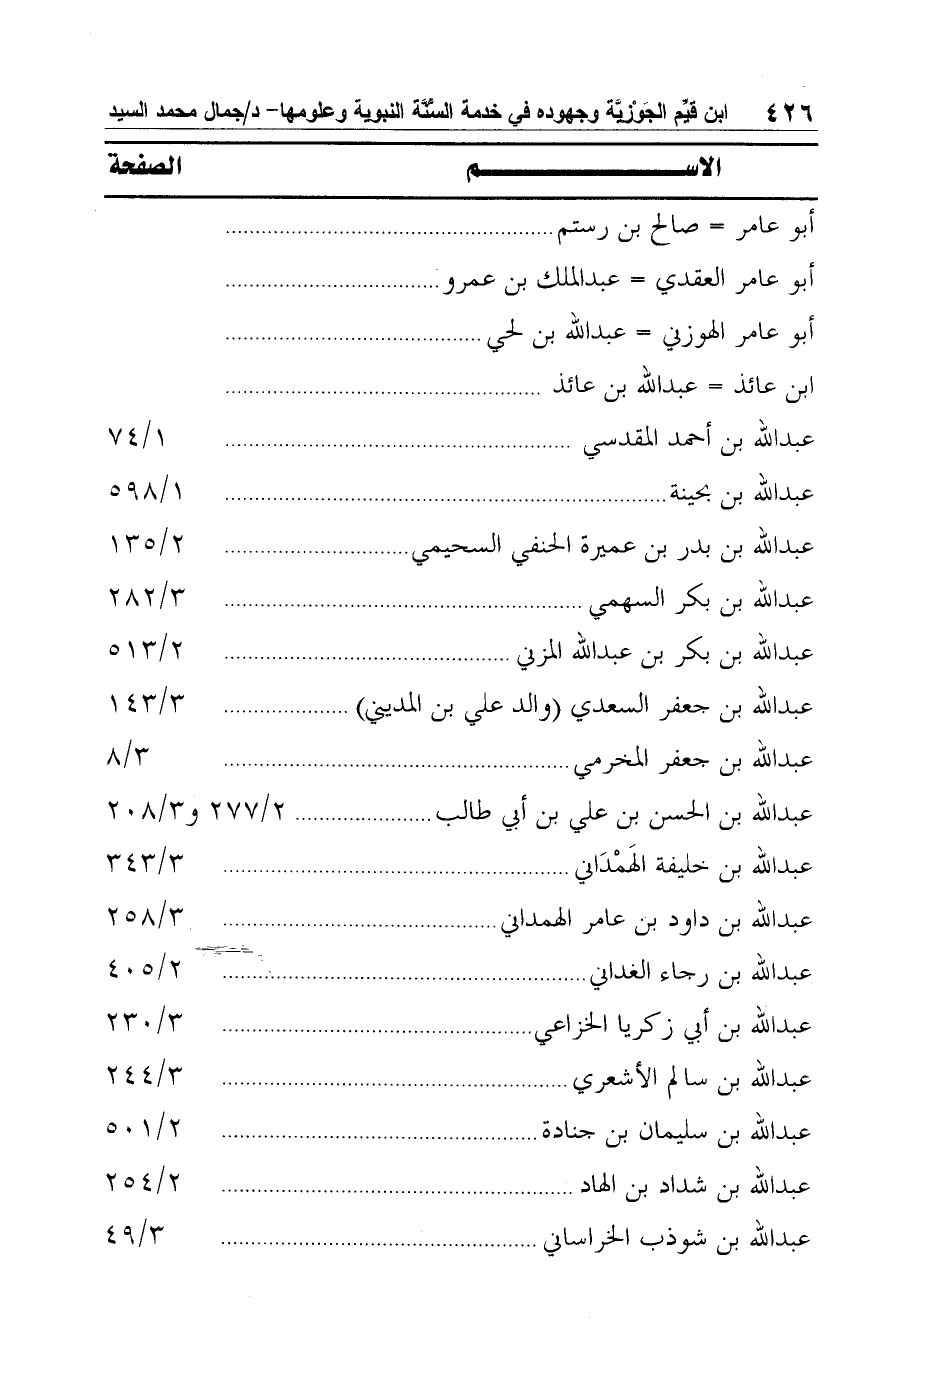 ٤٢٦ ابن قيِّم الجَوْزيَّة وجهوده في خدمة السُّنَّة النبوية وعلومها- د/جمال محمد السيد
الاســـــــــــــــــــم الصفحة
أبو عامر = صالح بن رستم
أبو عامر العقدي = عبدالملك بن عمرو
أبو عامر الهوزني = عبدالله بن لحي
ابن عائذ = عبدالله بن عائذ
عبدالله بن أحمد المقدسي ٧٤/١
عبدالله بن بحينة ٥٩٨/١
عبدالله بن بدر بن عميرة الحنفي السحيمي ١٣٥/٢
عبدالله بن بكر السهمي ٢٨٢/٣
عبدالله بن بكر بن عبدالله المزني ٥١٣/٢
عبدالله بن جعفر السعدي (والد علي بن المديني) ١٤٣/٣
عبدالله بن جعفر المخرمي ٨/٣
عبدالله بن الحسن بن علي بن أبي طالب ٢٧٧/٢ و٢٠٨/٣
عبدالله بن خليفة الهَمْدَاني ٣٤٣/٣
عبدالله بن داود بن عامر الهمداني ٢٥٨/٣
عبدالله بن رجاء الغداني ٤٠٥/٢
عبدالله بن أبي زكريا الخزاعي ٢٣٠/٣
عبدالله بن سالم الأشعري ٢٤٤/٣
عبدالله بن سليمان بن جنادة ٥٠١/٢
عبدالله بن شداد بن الهاد ٢٥٤/٢
عبدالله بن شوذب الخراساني ٤٩/٣